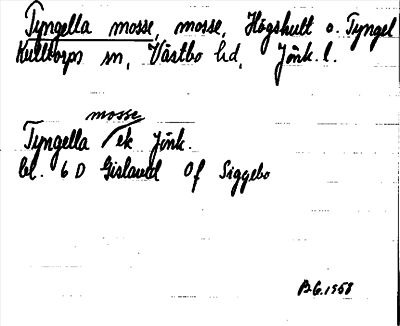 Tyngella mosse, mosse, Högshult o. Tyngel
Kulltorps sn, Västbo hd, Jönk. l.
mosse
Tyngella ek Jönk.
bl. 6 D Gislaved Of Siggebo
B.G. 1958